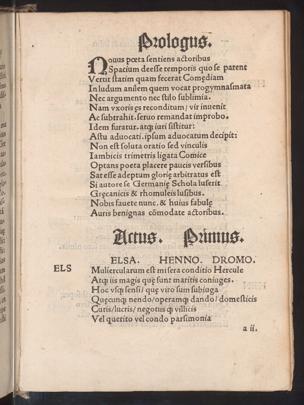 Prologus.
Nouus poeta sentiens actoribus
Spacium deesse temporis quo se parent
Vertit statim quam fecerat Comędiam
In ludum anilem quem vocat progymnasmata
Nec argumento nec stilo sublimia.
Nam vxoris ęs reconditum / vir inuenit
Ac subtrahit. seruo remandat improbo.
Idem furatur. atqɜ iuri sistitur:
Astu aduocati. ipsum aduocatum decipit:
Non est soluta oratio sed vinculis
Iambicis trimetris ligata Comice
Optans poeta placere paucis versibus
Sat esse adeptum glorię arbitratus est
Si autore se Germanię Schola luserit
Gręcanicis & rhomuleis lusibus.
Nobis fauete nunc. & huius fabulę
Auris benignas cōmodate actoribus.
Actus. Primus.
ELSA. HENNO. DROMO.
ELS Muliercularum est misera conditio Hercule
Atqɜ iis magis quę sunt maritis coniuges.
Hoc vsqɜ sensi / quę viro sum subiuga
Quęcunqɜ nendo / operamqɜ dando / domesticis
Curis / lucris / negotiis qɜ villicis
Vel quęrito vel condo parsimonia
a ii.